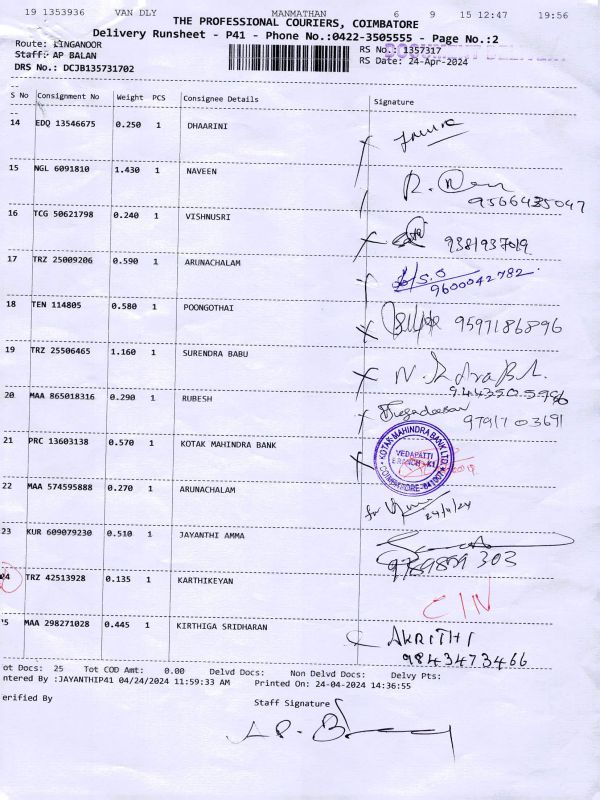 19 1353936 VAN DLY MANMATHAN 6 9 15 12:47 19:56
THE PROFESSIONAL COURIERS, COIMBATORE
Delivery Runsheet - P41 - Phone No.:0422-3505555 - Page No.:2
Route: LINGANOOR RS No.: 1357317
Staff: AP BALAN RS Date: 24-Apr-2024
DRS No.: DCJB135731702
S No Consignment No Weight PCS Consignee Details Signature
14 EDQ 13546675 0.250 1 DHAARINI
15 NGL 6091810 1.430 1 NAVEEN
9566435047
16 TCG 50621798 0.240 1 VISHNUSRI
9381937019
17 TRZ 25009206 0.590 1 ARUNACHALAM
9600042782
18 TEN 114805 0.580 1 POONGOTHAI
9597186896
19 TRZ 25506465 1.160 1 SURENDRA BABU
20 MAA 865018316 0.290 1 RUBESH
9791703691
21 PRC 13603138 0.570 1 KOTAK MAHINDRA BANK
KOTAK MAHINDRA BANK LTD.
VEDAPATTI
COIMBATORE
22 MAA 574595888 0.270 1 ARUNACHALAM
for 24/4/24
23 KUR 609079230 0.510 1 JAYANTHI AMMA
24 TRZ 42513928 0.135 1 KARTHIKEYAN
C/N
25 MAA 298271028 0.445 1 KIRTHIGA SRIDHARAN
AKRITHI
9843473466
ot Docs: 25 Tot COD Amt: 0.00 Delvd Docs: Non Delvd Docs: Delvy Pts:
ntered By :JAYANTHIP41 04/24/2024 11:59:33 AM Printed On: 24-04-2024 14:36:55
erified By Staff Signature